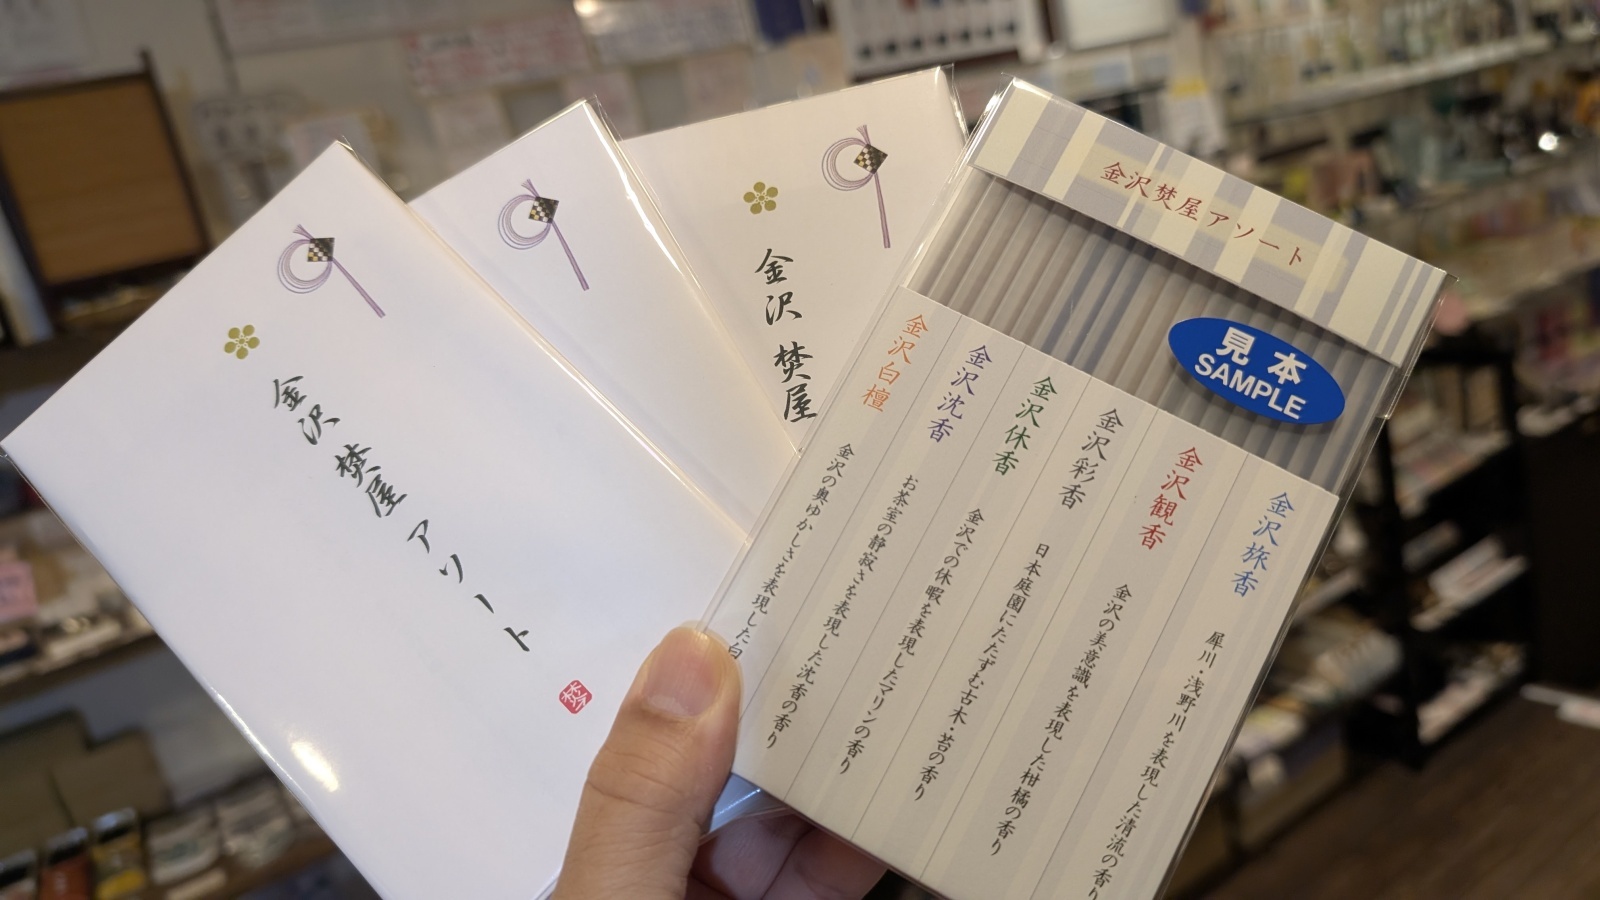 金沢 焚屋アソート
金沢 焚屋
金沢焚屋アソート
見本
SAMPLE
金沢旅香 犀川・浅野川を表現した清流の香り
金沢観香 金沢の美意識を表現した柑橘の香り
金沢彩香 日本庭園にたたずむ古木・苔の香り
金沢休香 金沢での休暇を表現したマリンの香り
金沢沈香 お茶室の静寂さを表現した沈香の香り
金沢白檀 金沢の奥ゆかしさを表現した白